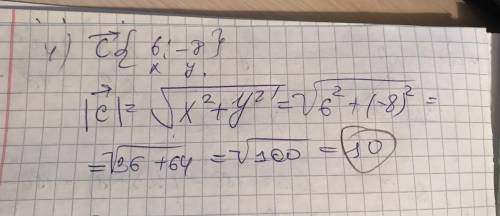 4) c⃗{6; -8}
x y.
|c⃗| = √(x²+y²) = √(6²+(-8)²) =
= √(36+64) = √100 = 10